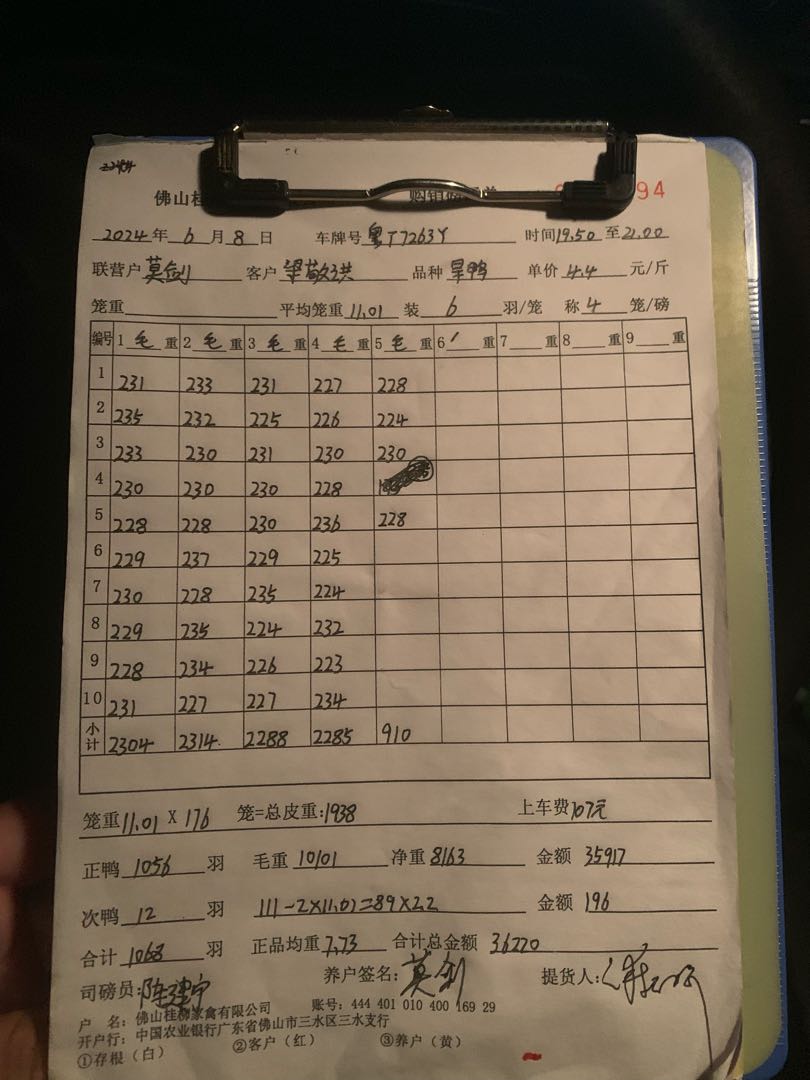 佛山桂 购销 单 94
2024年 6月 8日 车牌号 粤T7263Y 时间19.50至21.00
联营户 莫剑 客户 梁敬洪 品种 旱鸭 单价 4.4 元/斤
笼重 平均笼重 11.01 装 6 羽/笼 称 4 笼/磅
编号 1 毛 重 2 毛 重 3 毛 重 4 毛 重 5 毛 重 6 重 7 重 8 重 9 重
1 231 233 231 227 228
2 235 232 225 226 224
3 233 230 231 230 230
4 230 230 230 228
5 228 228 230 236 228
6 229 237 229 225
7 230 228 235 224
8 229 235 224 232
9 228 234 226 223
10 231 227 227 234
小计 2304 2314 2288 2285 910
笼重 11.01 X 176 笼=总皮重:1938 上车费107元
正鸭 1056 羽 毛重 10101 净重 8163 金额 35917
次鸭 12 羽 111-2×11.01=89×2.2 金额 196
合计 1068 羽 正品均重 7.73 合计总金额 36220
司磅员:陈建宁 养户签名:莫剑 提货人:
户 名:佛山桂柳家禽有限公司 账号:444 401 010 400 169 29
开户行:中国农业银行广东省佛山市三水区三水支行
①存根(白) ②客户(红) ③养户(黄)